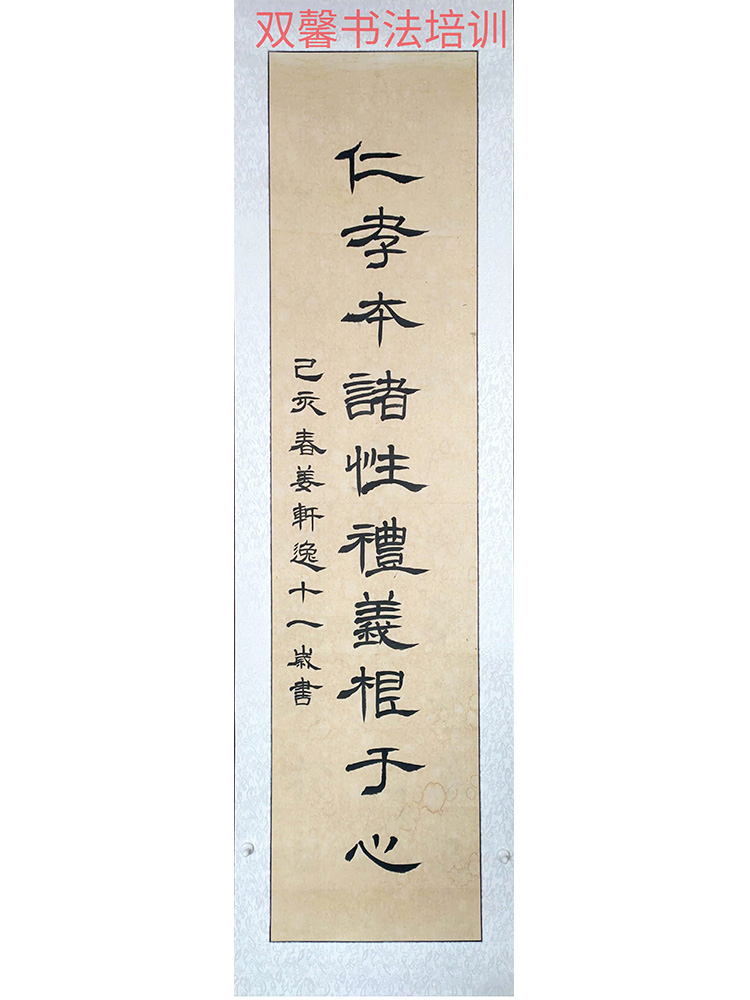 双馨书法培训
仁孝本諸性禮義根于心
己亥春姜軒逸十一歲書